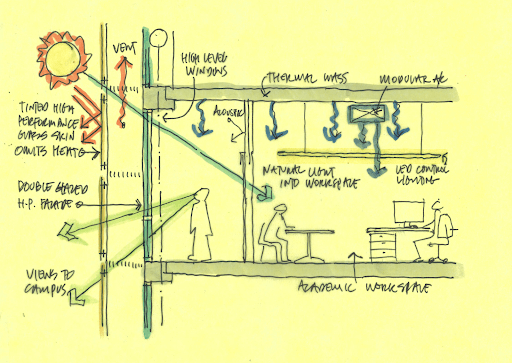 VENT
HIGH LEVEL
WINDOWS
THERMAL MASS
MODULAR A/C
TINTED HIGH
PERFORMANCE
GLASS SKIN
OMITS HEAT
ACOUSTIC
NATURAL LIGHT
INTO WORKSPACE
LED CONTROL
LIGHTING
DOUBLE GLAZED
H.P. FACADE
VIEWS TO
CAMPUS
ACADEMIC WORKSPACE